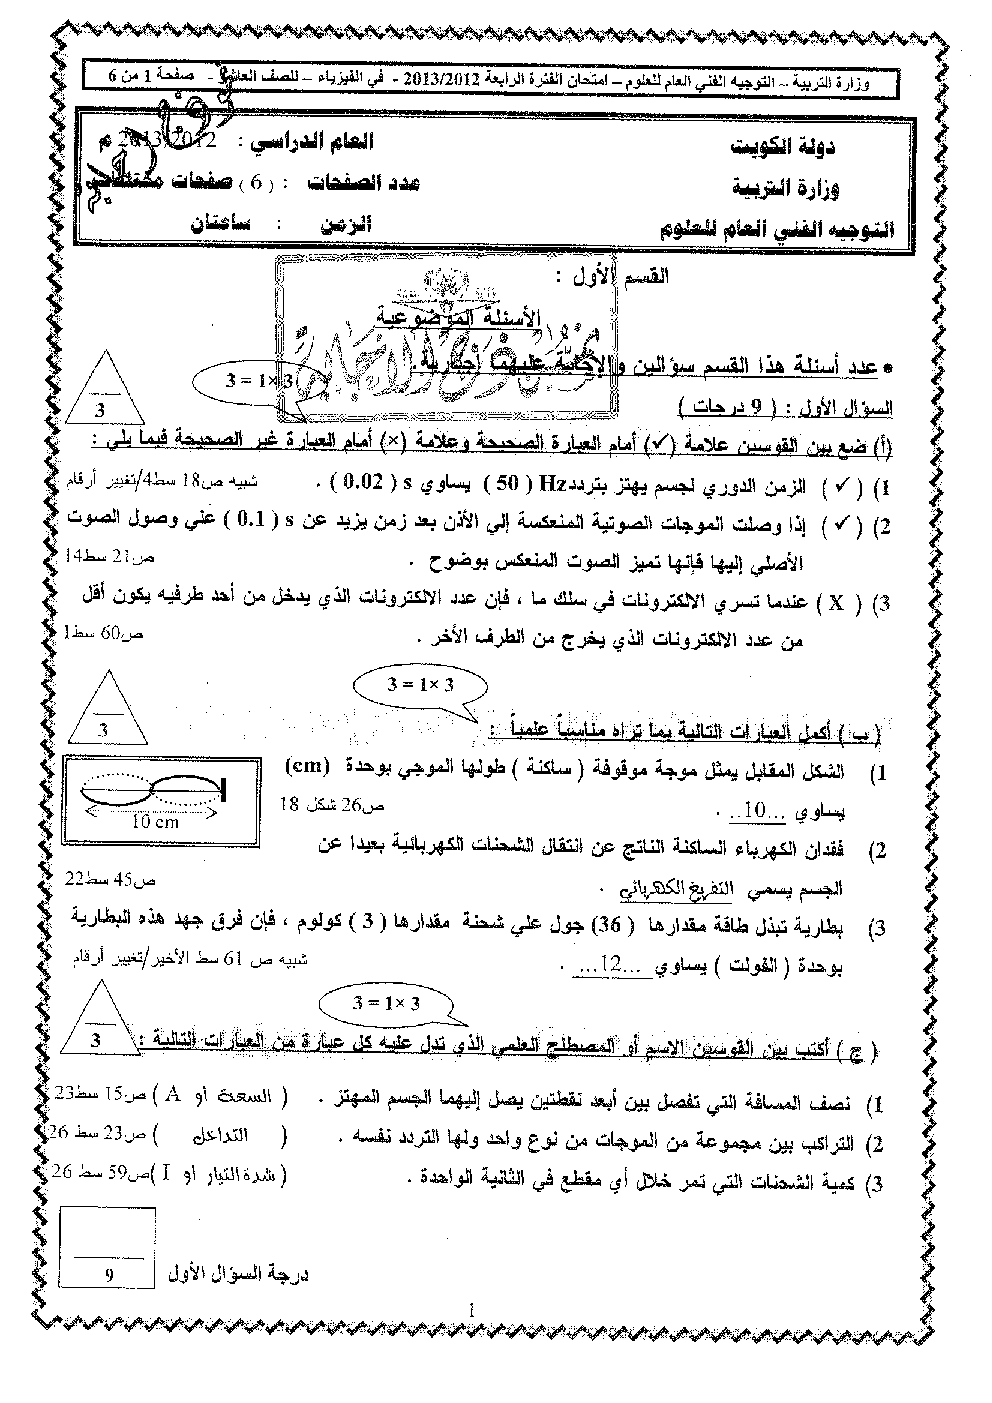 وزارة التربية – التوجيه الفني العام للعلوم – امتحان الفترة الرابعة 2013/2012 - في الفيزياء – للصف العاشر - صفحة 1 من 6
دولة الكويت
العام الدراسي : 2013/2012 م
وزارة التربية
عدد الصفحات : ( 6 ) صفحات مختلفات
التوجيه الفني العام للعلوم
الزمن : ساعتان
القسم الأول :
الأسئلة الموضوعية
نموذج الإجابة
* عدد أسئلة هذا القسم سؤالين والإجابة عليهما إجبارية.
3 = 1× 3
3
السؤال الأول : ( 9 درجات )
(أ) ضع بين القوسين علامة (✓) أمام العبارة الصحيحة وعلامة (×) أمام العبارة غير الصحيحة فيما يلي :
1) ( ✓ ) الزمن الدوري لجسم يهتز بتردد Hz ( 50 ) يساوي s ( 0.02 ) . شبيه ص18 سط4/تغيير أرقام
2) ( ✓ ) إذا وصلت الموجات الصوتية المنعكسة إلي الأذن بعد زمن يزيد عن s ( 0.1 ) علي وصول الصوت
الأصلي إليها فإنها تميز الصوت المنعكس بوضوح . ص21 سط14
3) ( X ) عندما تسري الالكترونات في سلك ما ، فإن عدد الالكترونات الذي يدخل من أحد طرفيه يكون أقل
من عدد الالكترونات الذي يخرج من الطرف الأخر . ص60 سط1
3 = 1× 3
3
( ب ) أكمل العبارات التالية بما تراه مناسباً علمياً :
1) الشكل المقابل يمثل موجة موقوفة ( ساكنة ) طولها الموجي بوحدة (cm)
يساوي ...10.. . ص26 شكل 18
10 cm
2) فقدان الكهرباء الساكنة الناتج عن انتقال الشحنات الكهربائية بعيدا عن
الجسم يسمي التفريغ الكهربائي . ص45 سط22
3) بطارية تبذل طاقة مقدارها (36) جول علي شحنة مقدارها ( 3 ) كولوم ، فإن فرق جهد هذه البطارية
بوحدة ( الفولت ) يساوي ...12... . شبيه ص 61 سط الأخير/تغيير أرقام
3 = 1× 3
3
( ج ) أكتب بين القوسين الاسم أو المصطلح العلمي الذي تدل عليه كل عبارة من العبارات التالية :
1) نصف المسافة التي تفصل بين أبعد نقطتين يصل إليهما الجسم المهتز . ( السعة أو A ) ص15 سط23
2) التراكب بين مجموعة من الموجات من نوع واحد ولها التردد نفسه . ( التداخل ) ص23 سط 26
3) كمية الشحنات التي تمر خلال أي مقطع في الثانية الواحدة . ( شدة التيار أو I ) ص59 سط 26
درجة السؤال الأول
9
1